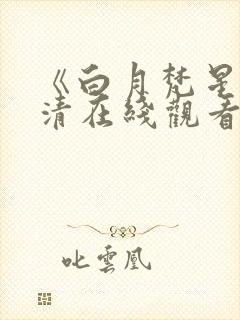 《白月梵星
清在綫觀看
叱雲凰